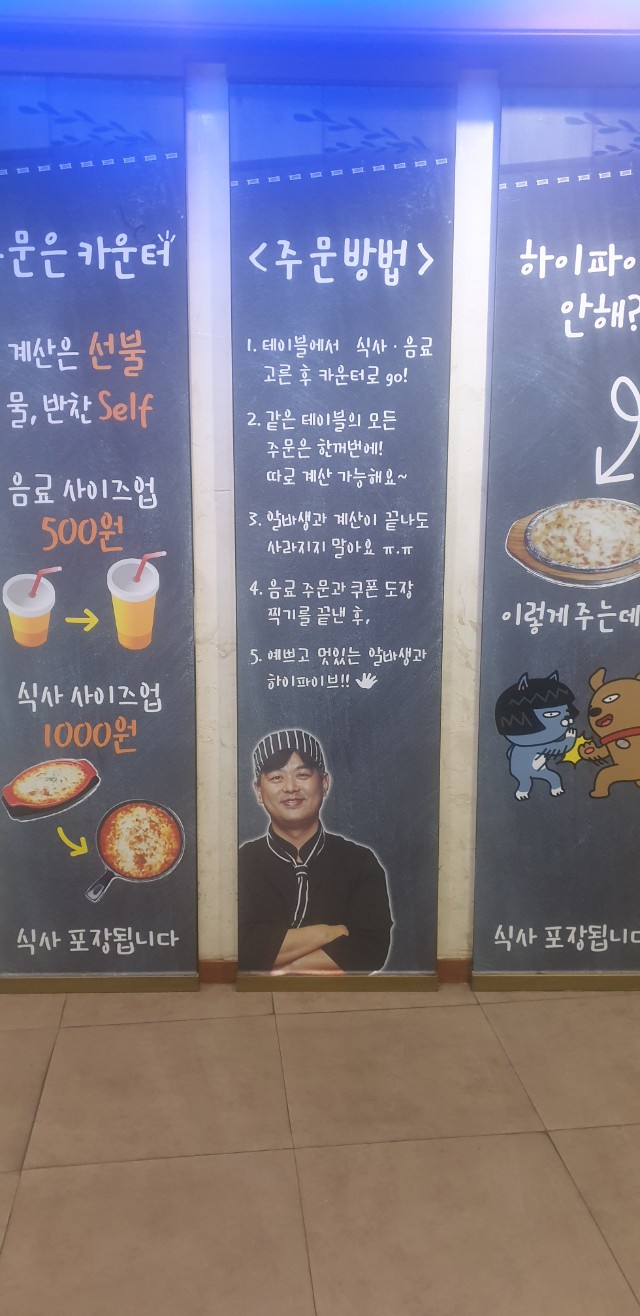 문은 카운터
계산은 선불
물, 반찬 Self
음료 사이즈업
500원
식사 사이즈업
1000원
식사 포장됩니다
<주문방법>
1. 테이블에서 식사·음료
고른 후 카운터로 go!
2. 같은 테이블의 모든
주문은 한꺼번에!
따로 계산 가능해요~
3. 알바생과 계산이 끝나도
사라지지 말아요 ㅠ.ㅠ
4. 음료 주문과 쿠폰 도장
찍기를 끝낸 후,
5. 예쁘고 멋있는 알바생과
하이파이브!!
하이파이
안해?
이렇게 주는데
식사 포장됩니다